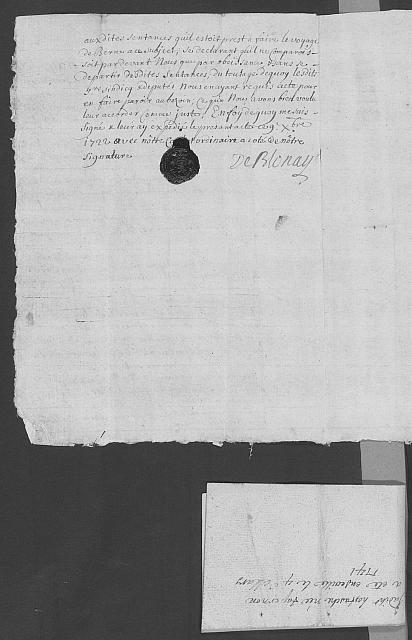 auxdites sentances quil estoit prest à faire le voyage
de Berne a ce subject; se declarant quil ne comparois-
soit par devant Nous que par obeissance, & sans se
departir desdites sentances, du tout dequoy lesdits
Srs Sindicq & deputés Nous en ayant requis acte pour
en faire paroir au besoin, Ce que Nous avons bien voulu
leur accorder comme juste, En foy dequoy me suis
signé & leur ay expedié le present acte ce 9e Xbre
1722 avec nôtre ordinaire a coté de nôtre
signature
De Blonay
a été le 4e Mars
1741